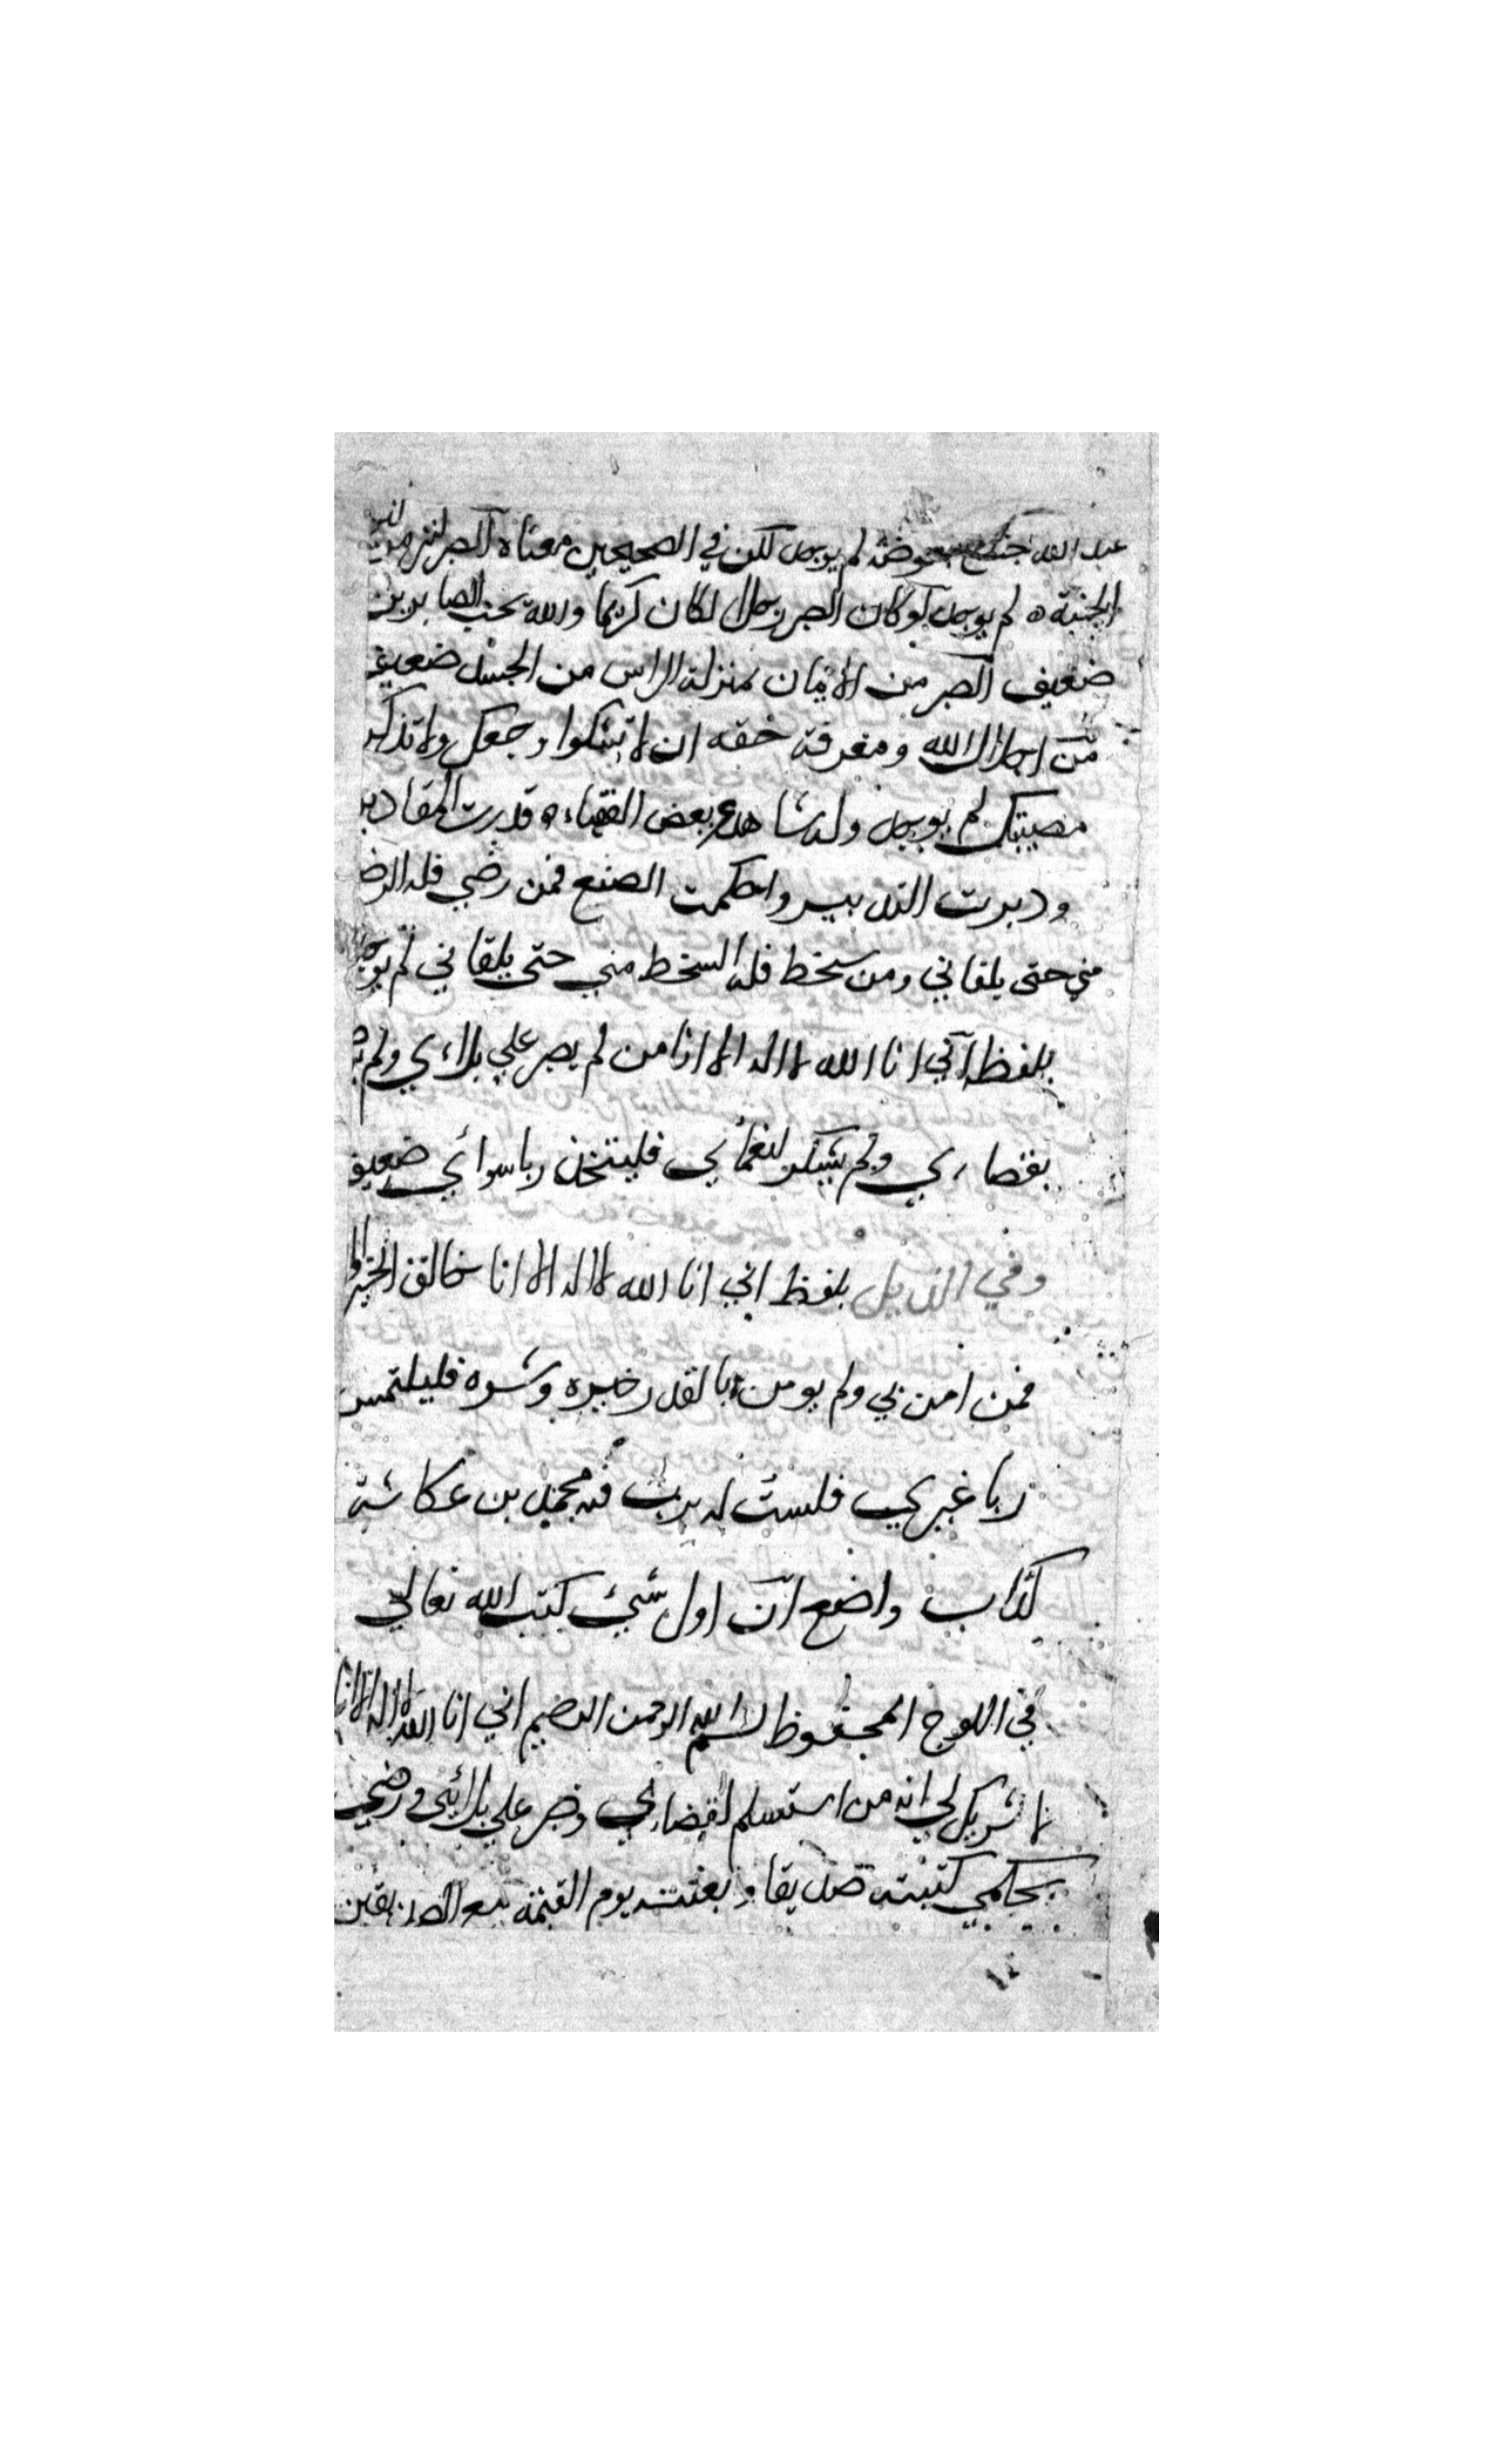 عبد الله لم يوجد لكن في الصحيحين معناه الصبر كنز من
الجنة ه لم يوجد لو كان الصبر رجلا لكان كريما والله يحب الصابرين
ضعيف الصبر من الايمان بمنزلة الراس من الجسد ضعيف
من اجلال الله ومعرفة حقه ان لا تشكوا وجعك ولا تذكر
مصيبتك لم يوجد وله شاهد عن بعض الفقهاء ه قدرت المقادير
ودبرت التدبير واحكمت الصنع فمن رضي فله الرضا
مني حتى يلقاني ومن سخط فله السخط مني حتى يلقاني لم يوجد
بلفظ اني انا الله لا اله الا انا من لم يصبر علي بلاءي ولم
بقضاءي ولم يشكر لنعمائي فليتخذ ربا سوائي ضعيف
وفي الذيل بلفظ اني انا الله لا اله الا انا خالق الخير
فمن امن بي ولم يومن بالقدر خيره وشره فليلتمس
ربا غيري فلست له برب فيه محمد بن عكاشة
كذاب واضع ان اول شيئ كتب الله تعالي
في اللوح المحفوظ بسم الله الرحمن الرحيم اني انا الله لا اله الا انا
لا شريك لي انه من استسلم لقضاءي وصبر علي بلائي ورضي
بحكمي كتبته صديقا وبعثته يوم القيمة مع الصديقين